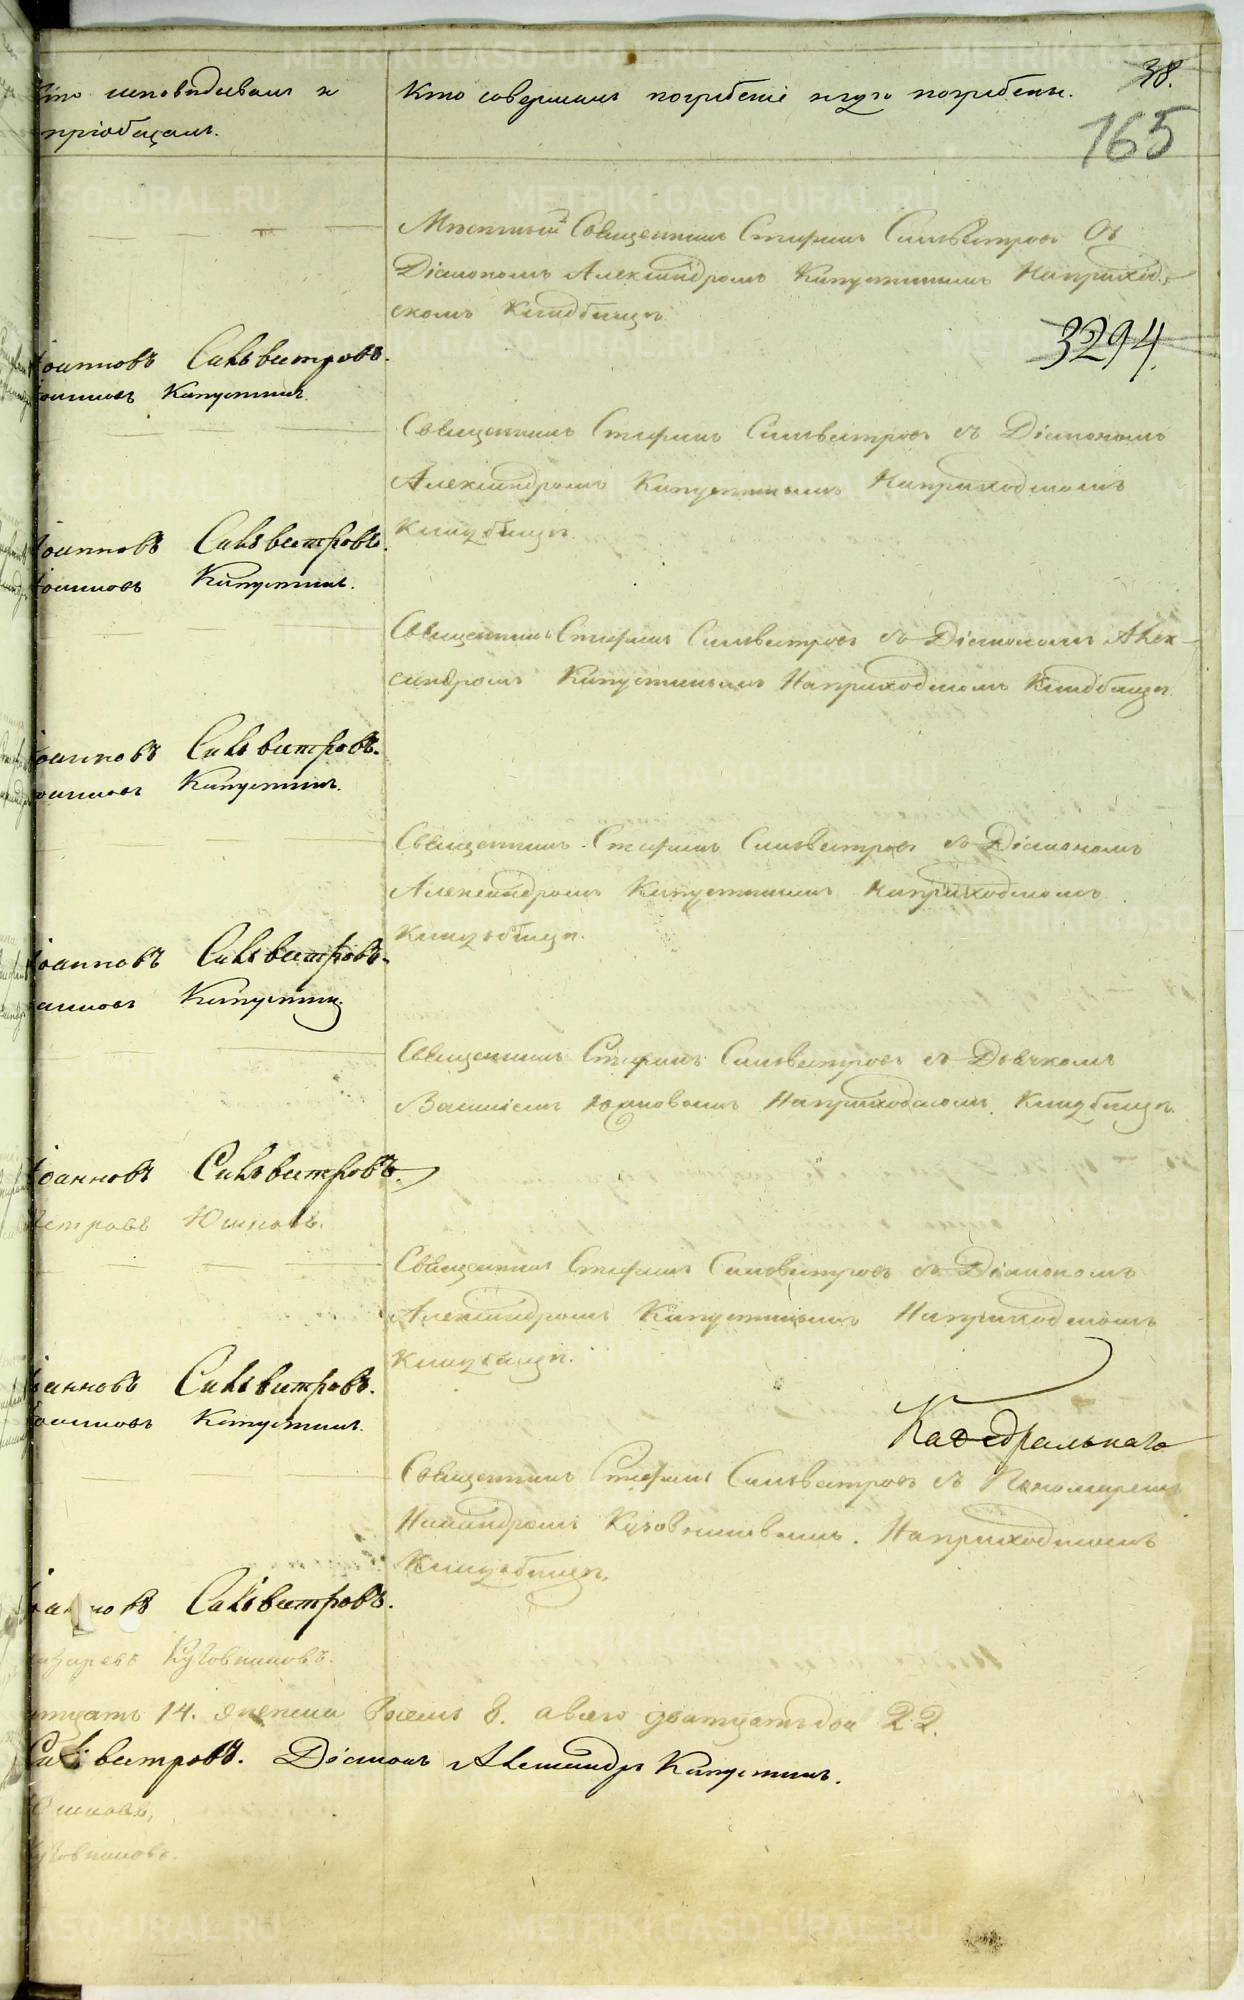 Кто исповѣдывалъ и
пріобщалъ.
Кто совершалъ погребеніе и гдѣ погребены.
38.
165
Мѣстный Священникъ Стефанъ Сильвестровъ Съ
Діакономъ Александромъ Капустинымъ На приход-
скомъ Кладбищѣ
3294.
Іоанновъ Сильвестровъ.
Іоанновъ Капустинъ.
Священникъ Стефанъ Сильвестровъ съ Діакономъ
Александромъ Капустинымъ На приходскомъ
Кладбищѣ.
Іоанновъ Сильвестровъ.
Іоанновъ Капустинъ.
Священникъ Стефанъ Сильвестровъ съ Діакономъ Алек-
сандромъ Капустинымъ На приходскомъ Кладбищѣ.
Іоанновъ Сильвестровъ.
Іоанновъ Капустинъ.
Священникъ Стефанъ Сильвестровъ съ Діакономъ
Александромъ Капустинымъ На приходскомъ
Кладбищѣ.
Іоанновъ Сильвестровъ.
Іоанновъ Капустинъ
Священникъ Стефанъ Сильвестровъ съ Дьячкомъ
На приходскомъ Кладбищѣ.
Іоанновъ Сильвестровъ.
Петровъ Юшковъ.
Священникъ Стефанъ Сильвестровъ съ Діакономъ
Александромъ Капустинымъ На приходскомъ
Кладбищѣ.
Іоанновъ Сильвестровъ.
Іоанновъ Капустинъ.
Кафедральнаго
Священникъ Стефанъ Сильвестровъ съ Пономаремъ
Никандромъ Кузовниковымъ. На приходскомъ
Кладбищѣ.
Іоанновъ Сильвестровъ.
Кузовниковъ.
14. женска восемь 8. а всего дватцать два 22.
Сильвестровъ. Діаконъ Александръ Капустинъ.
Юшковъ,
Кузовниковъ.
METRIKI.GASO-URAL.RU